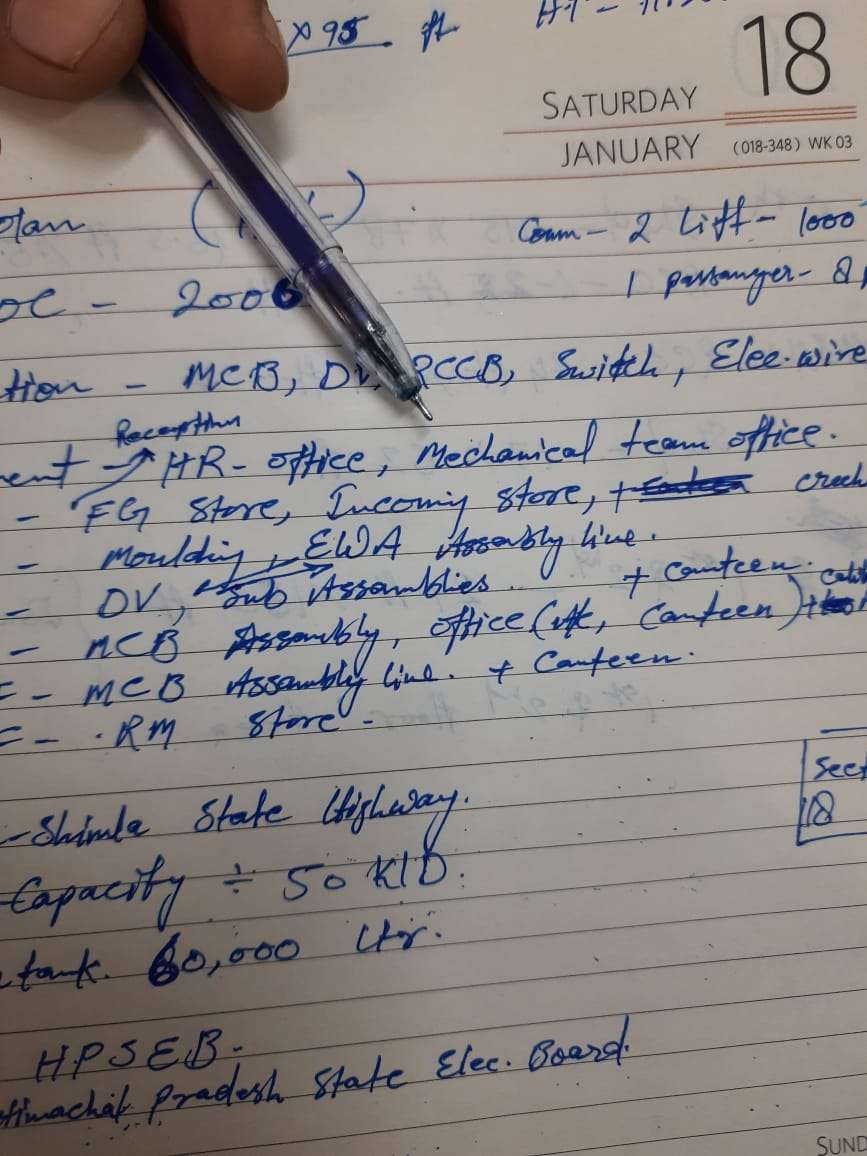 × 95 ft HT -
18
SATURDAY
JANUARY (018-348) WK 03
plan Comm - 2 Lift - 1000
OC - 2006 1 passanger - 8
tion - MCB, DV, RCCB, Switch, Elec. wire
Reception
ment - HR - office, Mechanical team office.
- FG Store, Incoming Store, + crech
- Moulding, EWA Assembly line.
- DV, Sub Assemblies + Canteen.
- MCB Assembly, office ( Canteen) +
- MCB Assembly line. + Canteen.
- RM Store -
Sect
18
- Shimla State Highway.
Capacity ÷ 50 KLD.
tank. 60,000 Ltr.
HPSEB.
Himachal Pradesh State Elec. Board.
SUND